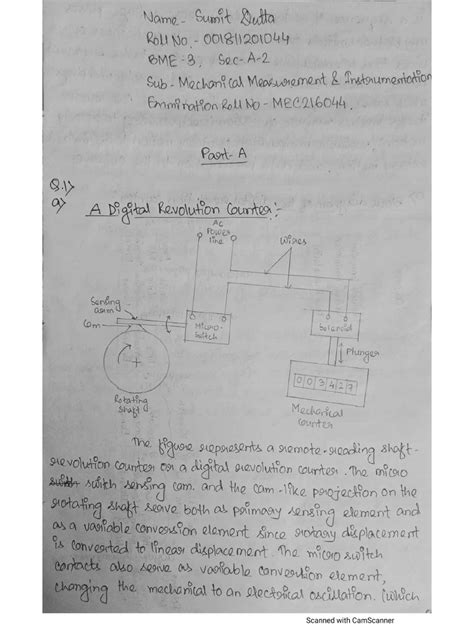 Name - Sumit Dutta
Roll No. - 001811201044
BME - 3, Sec - A-2
Sub - Mechanical Measurement & Instrumentation
Exmination Roll No - MEC216044.
Part - A
Q.1>
a>
A Digital Revolution Counter :-
AC
Power
line
Wires
Sensing
arm
Cam
Micro-
Switch
Solenoid
Plunger
003427
Rotating
Shaft
Mechanical
Counter
The figure represents a remote-reading shaft-
revolution counter or a digital revolution counter. The micro
switch sensing cam. and the cam-like projection on the
rotating shaft serve both as primary sensing element and
as a variable conversion element since rotary displacement
is converted to linear displacement. The micro switch
contacts also serve as variable conversion element,
changing the mechanical to an electrical oscillation. (which
Scanned with CamScanner